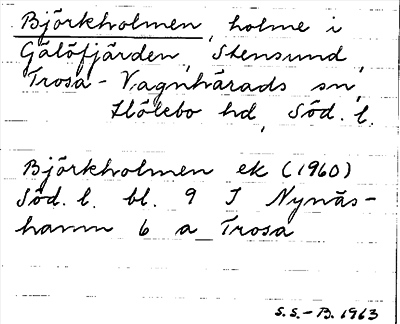 Björkholmen, holme i
Gälöfjärden, Stensund,
Trosa-Vagnhärads sn,
Hölebo hd, Söd. l.
Björkholmen ek (1960)
Söd. l. bl. 9 I Nynäs-
hamn 6 a Trosa
S.S.-B. 1963